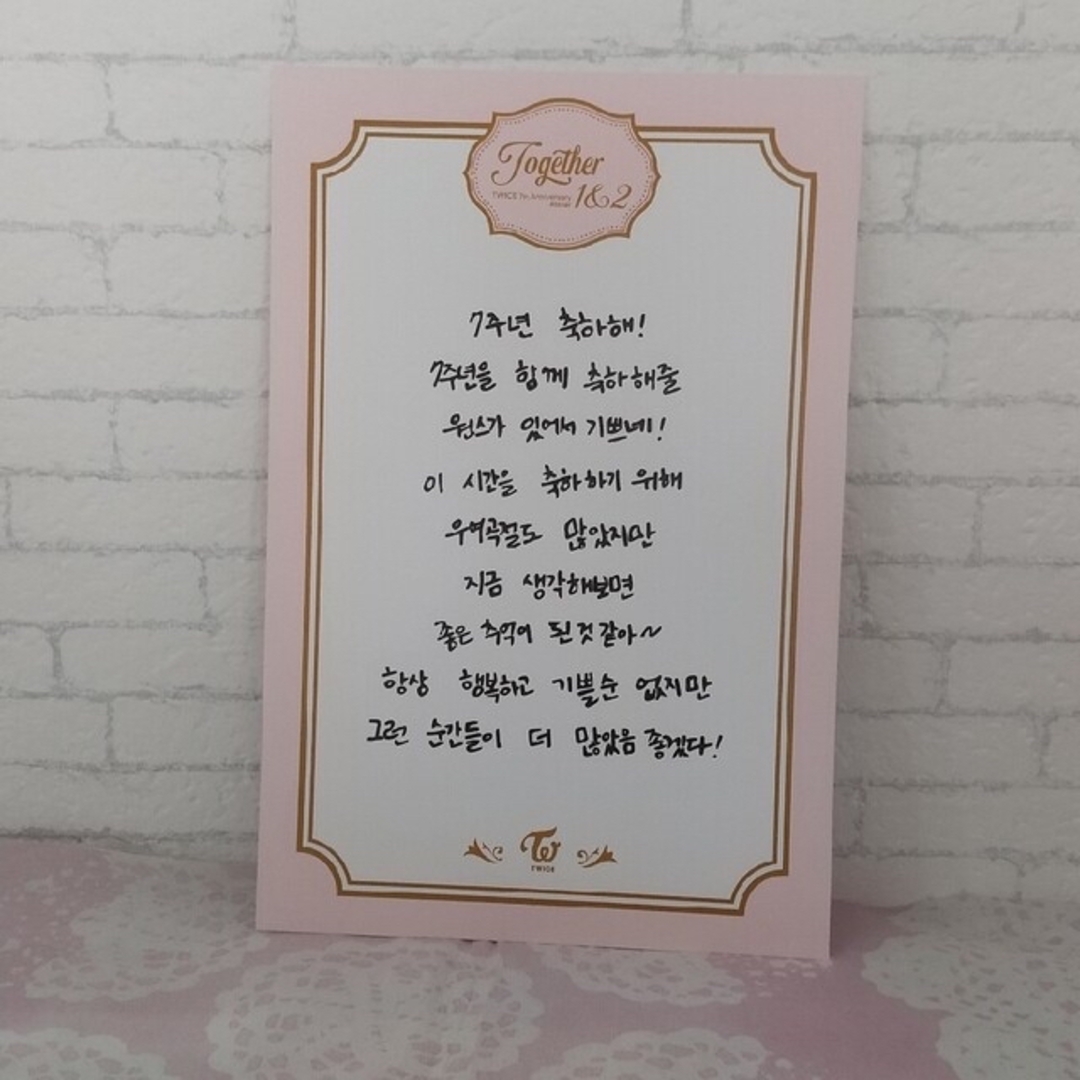 Together
TWICE 7th Anniversary
1&2
7주년 축하해!
7주년을 함께 축하해줄
원스가 있어서 기쁘네!
이 시간을 축하하기 위해
우여곡절도 많았지만
지금 생각해보면
좋은 추억이 된것 같아~
항상 행복하고 기쁠순 없지만
그런 순간들이 더 많았음 좋겠다!
TWICE